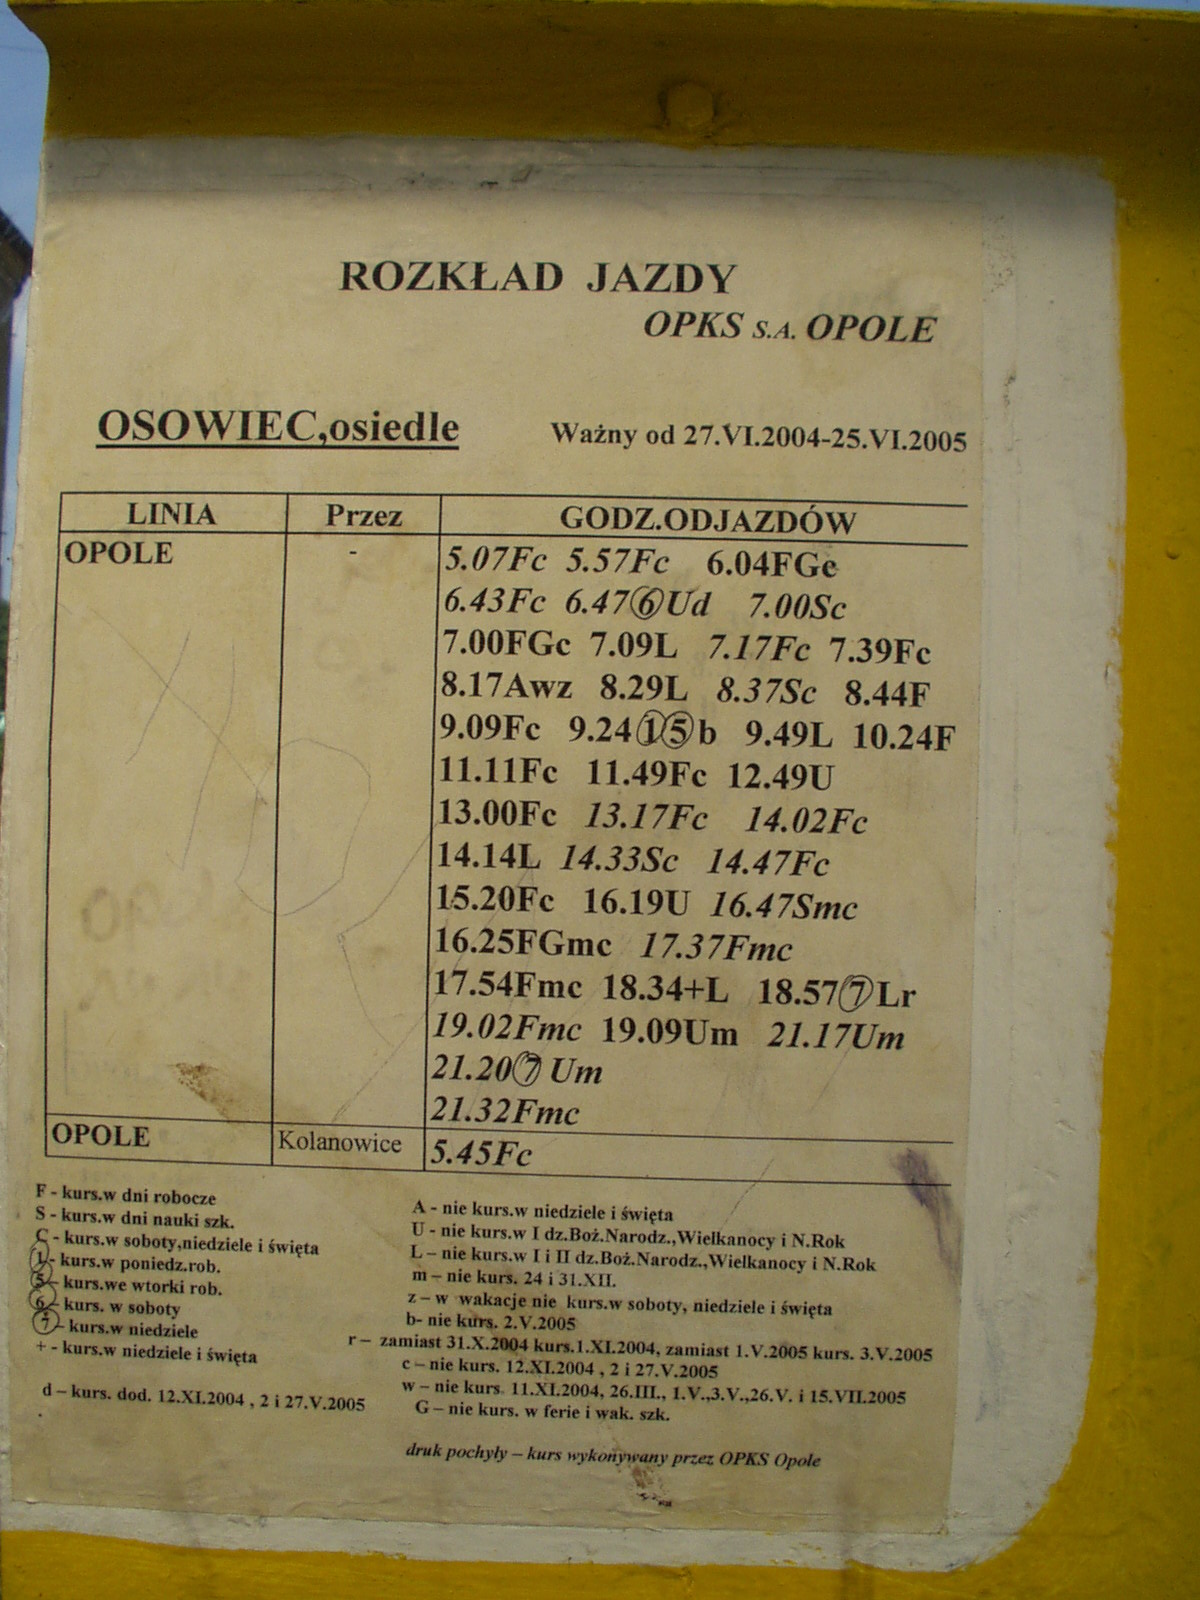 ROZKŁAD JAZDY
OPKS S.A. OPOLE
OSOWIEC,osiedle Ważny od 27.VI.2004-25.VI.2005
LINIA Przez GODZ.ODJAZDÓW
OPOLE - 5.07Fc 5.57Fc 6.04FGc
6.43Fc 6.47⑥Ud 7.00Sc
7.00FGc 7.09L 7.17Fc 7.39Fc
8.17Awz 8.29L 8.37Sc 8.44F
9.09Fc 9.24①⑤b 9.49L 10.24F
11.11Fc 11.49Fc 12.49U
13.00Fc 13.17Fc 14.02Fc
14.14L 14.33Sc 14.47Fc
15.20Fc 16.19U 16.47Smc
16.25FGmc 17.37Fmc
17.54Fmc 18.34+L 18.57⑦Lr
19.02Fmc 19.09Um 21.17Um
21.20⑦ Um
21.32Fmc
OPOLE Kolanowice 5.45Fc
F - kurs.w dni robocze
S - kurs.w dni nauki szk.
C - kurs.w soboty,niedziele i święta
① - kurs.w poniedz.rob.
⑤ - kurs.we wtorki rob.
⑥ - kurs. w soboty
⑦ - kurs.w niedziele
+ - kurs.w niedziele i święta
d – kurs. dod. 12.XI.2004 , 2 i 27.V.2005
A - nie kurs.w niedziele i święta
U - nie kurs.w I dz.Boż.Narodz.,Wielkanocy i N.Rok
L – nie kurs.w I i II dz.Boż.Narodz.,Wielkanocy i N.Rok
m – nie kurs. 24 i 31.XII.
z – w wakacje nie kurs.w soboty, niedziele i święta
b- nie kurs. 2.V.2005
r – zamiast 31.X.2004 kurs.1.XI.2004, zamiast 1.V.2005 kurs. 3.V.2005
c – nie kurs. 12.XI.2004 , 2 i 27.V.2005
w – nie kurs. 11.XI.2004, 26.III., 1.V.,3.V.,26.V. i 15.VII.2005
G – nie kurs. w ferie i wak. szk.
druk pochyły – kurs wykonywany przez OPKS Opole